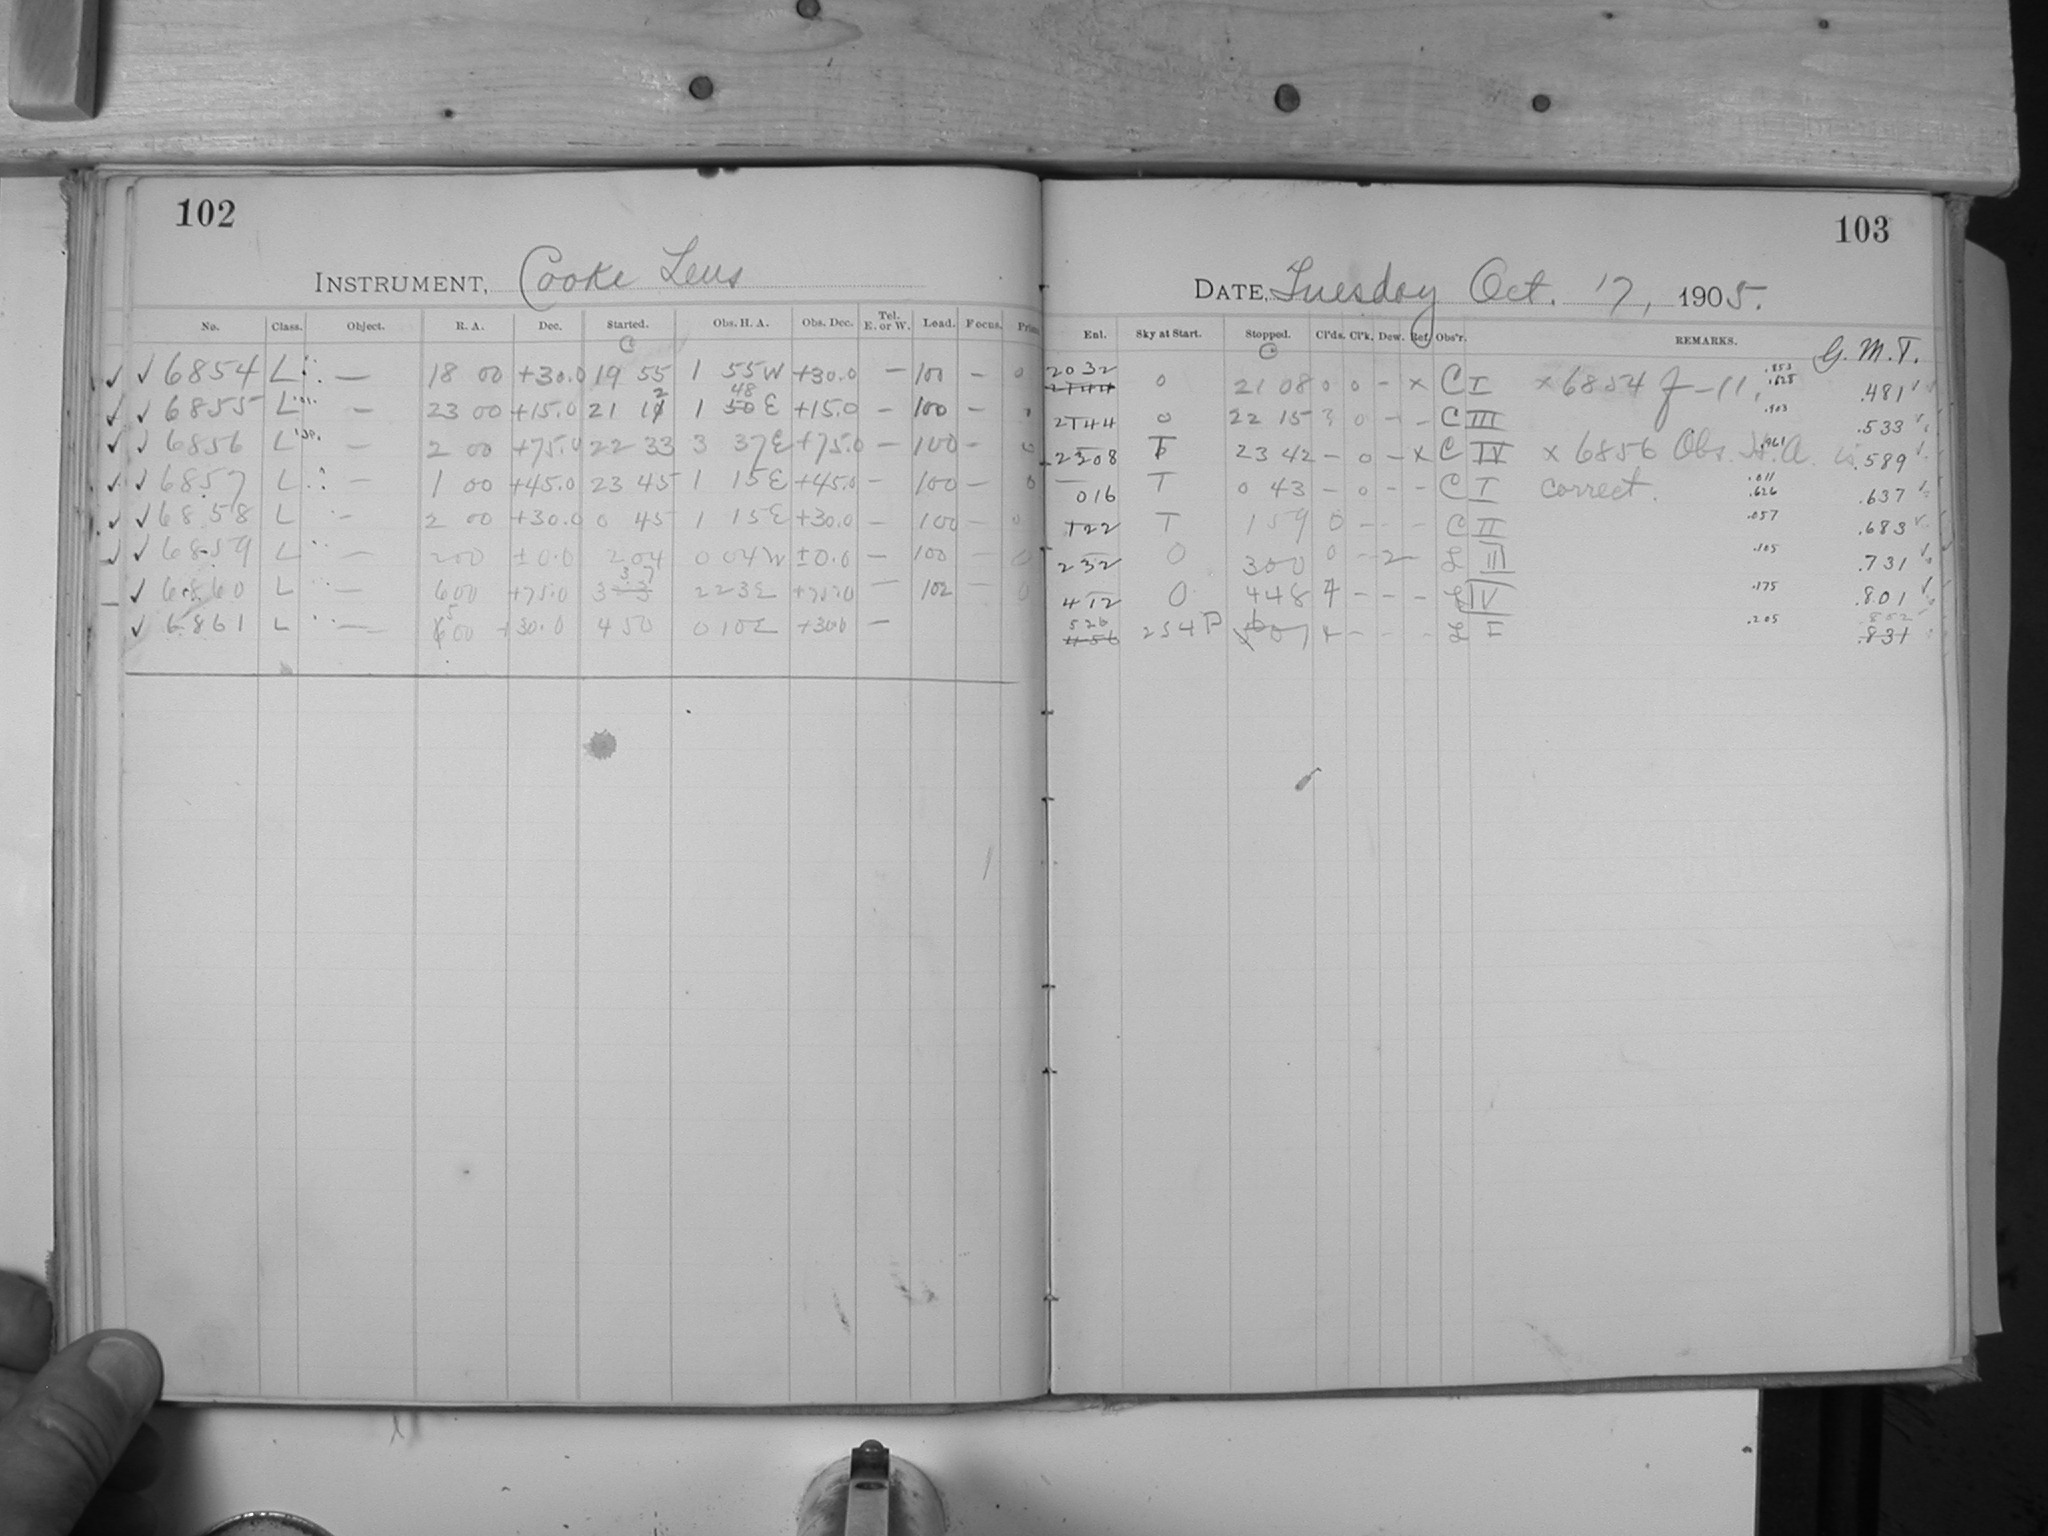 102
INSTRUMENT, Cooke Lens
No. Class. Object. R. A. Dec. Started. Obs. H. A. Obs. Dec. Tel. E. or W. Lead. Focus.
C
✓ ✓ 6854 L — 18 00 +30.0 19 55 1 55 W +30.0 — 100 — 0
✓ ✓ 6855 L — 23 00 +15.0 21 12 1 48 E +15.0 — 100 —
✓ ✓ 6856 L — 2 00 +75.0 22 33 3 37 E +75.0 — 100 — 0
✓ ✓ 6857 L — 1 00 +45.0 23 45 1 15 E +45.0 — 100 — 0
✓ ✓ 6858 L — 2 00 +30.0 0 45 1 15 E +30.0 — 100 — 0
✓ ✓ 6859 L — 2 00 ±0.0 2 04 0 04 W ±0.0 — 100 — 0
✓ 6860 L — 6 00 +75.0 3 37 2 23 E +75.0 — 102 — 0
✓ 6861 L — 5 00 +30.0 4 50 0 10 E +30.0 —
103
DATE, Tuesday Oct. 17, 1905.
Enl. Sky at Start. Stopped. Cl'ds. Cl'k. Dew. Ref. Obs'r. REMARKS. G. M. T.
C
2032 0 21 08 0 0 - x C I x 6854 J-11, .853 .625 .481 ✓
2144 0 22 15 3 0 - - C III .903 .533 ✓
2308 T 23 42 - 0 - x C IV x 6856 Obs. H.A. is .961 .589 ✓
016 T 0 43 - 0 - - C I correct. .011 .626 .637 ✓
122 T 1 59 0 - - - C II .057 .683 ✓
232 0 3 00 0 - 2 - L III .105 .731 ✓
412 0 4 48 4 - - - L IV .175 .801 ✓
526 254 P 4 - - - L I .205 .852
.831